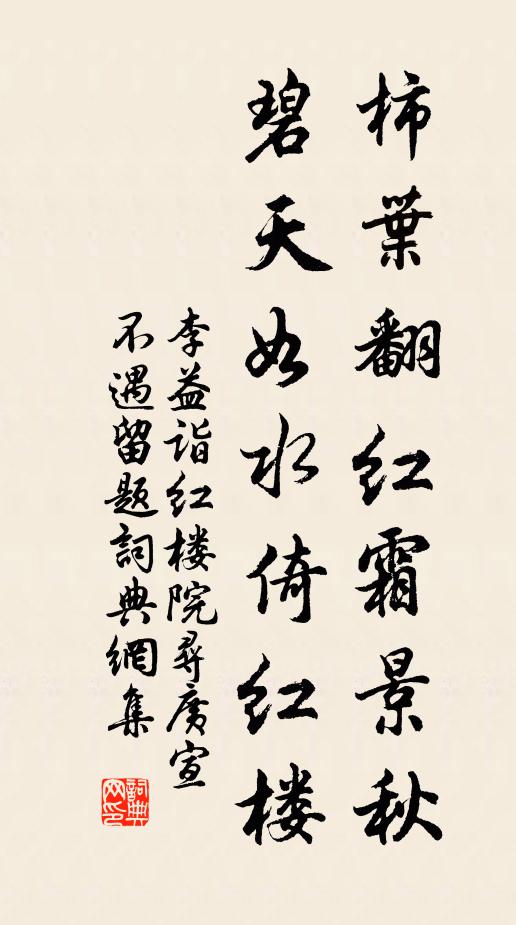 柿葉翻红霜景秋
碧天如水倚红楼
李益诣红楼院尋廣宣
不遇留题詞典網集
詞典
网印